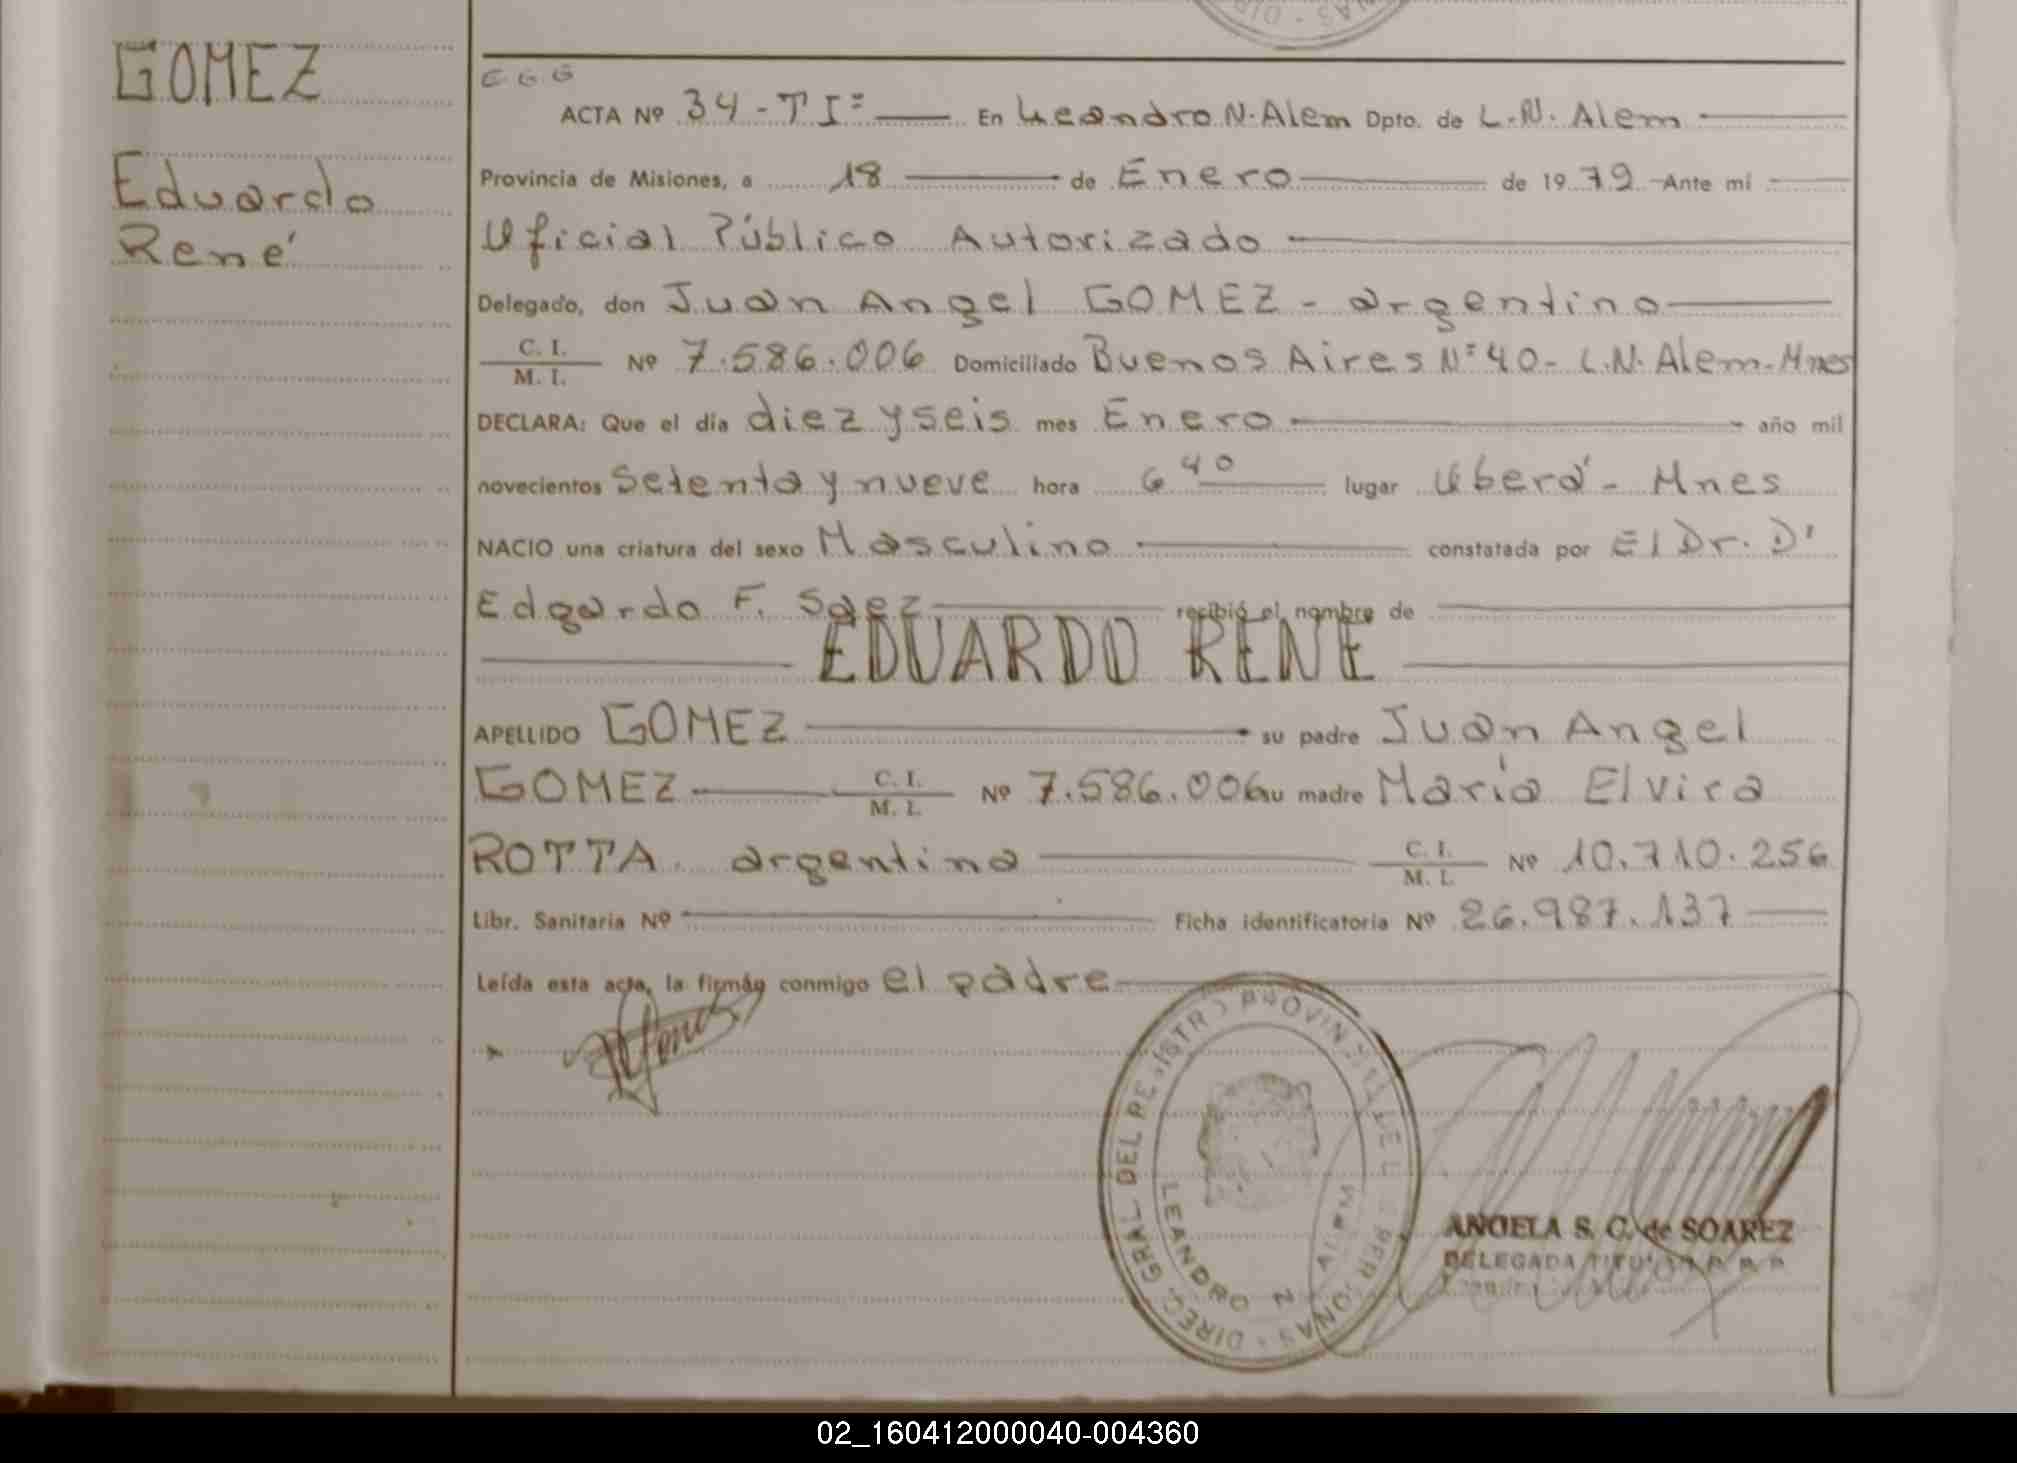 GOMEZ
Eduardo
René
E G G
ACTA Nº 34 - T Iº En Leandro N. Alem Dpto. de L. N. Alem
Provincia de Misiones, a 18 de Enero de 1979 Ante mí
Oficial Público Autorizado
Delegado, don Juan Angel GOMEZ - argentino
C. I.
M. I. Nº 7.586.006 Domiciliado Buenos Aires Nº 40 - L.N. Alem - Mnes
DECLARA: Que el día diez y seis mes Enero año mil
novecientos Setenta y nueve hora 6 40 lugar Oberá - Mnes
NACIO una criatura del sexo Masculino constatada por El Dr. Dº
Edgardo F. Saez recibió el nombre de
EDUARDO RENE
APELLIDO GOMEZ su padre Juan Angel
GOMEZ C. I.
M. I. Nº 7.586.006 su madre María Elvira
ROTTA argentina C. I.
M. I. Nº 10.710.256
Libr. Sanitaria Nº Ficha identificatoria Nº 26.987.137
Leída esta acta, la firmán conmigo el padre
DIREC. GRAL DEL REGISTRO PROVINCIAL DE L PERSONAS
LEANDRO N. ALEM
ANGELA S. C. de SOAREZ
DELEGADA
02_160412000040-004360